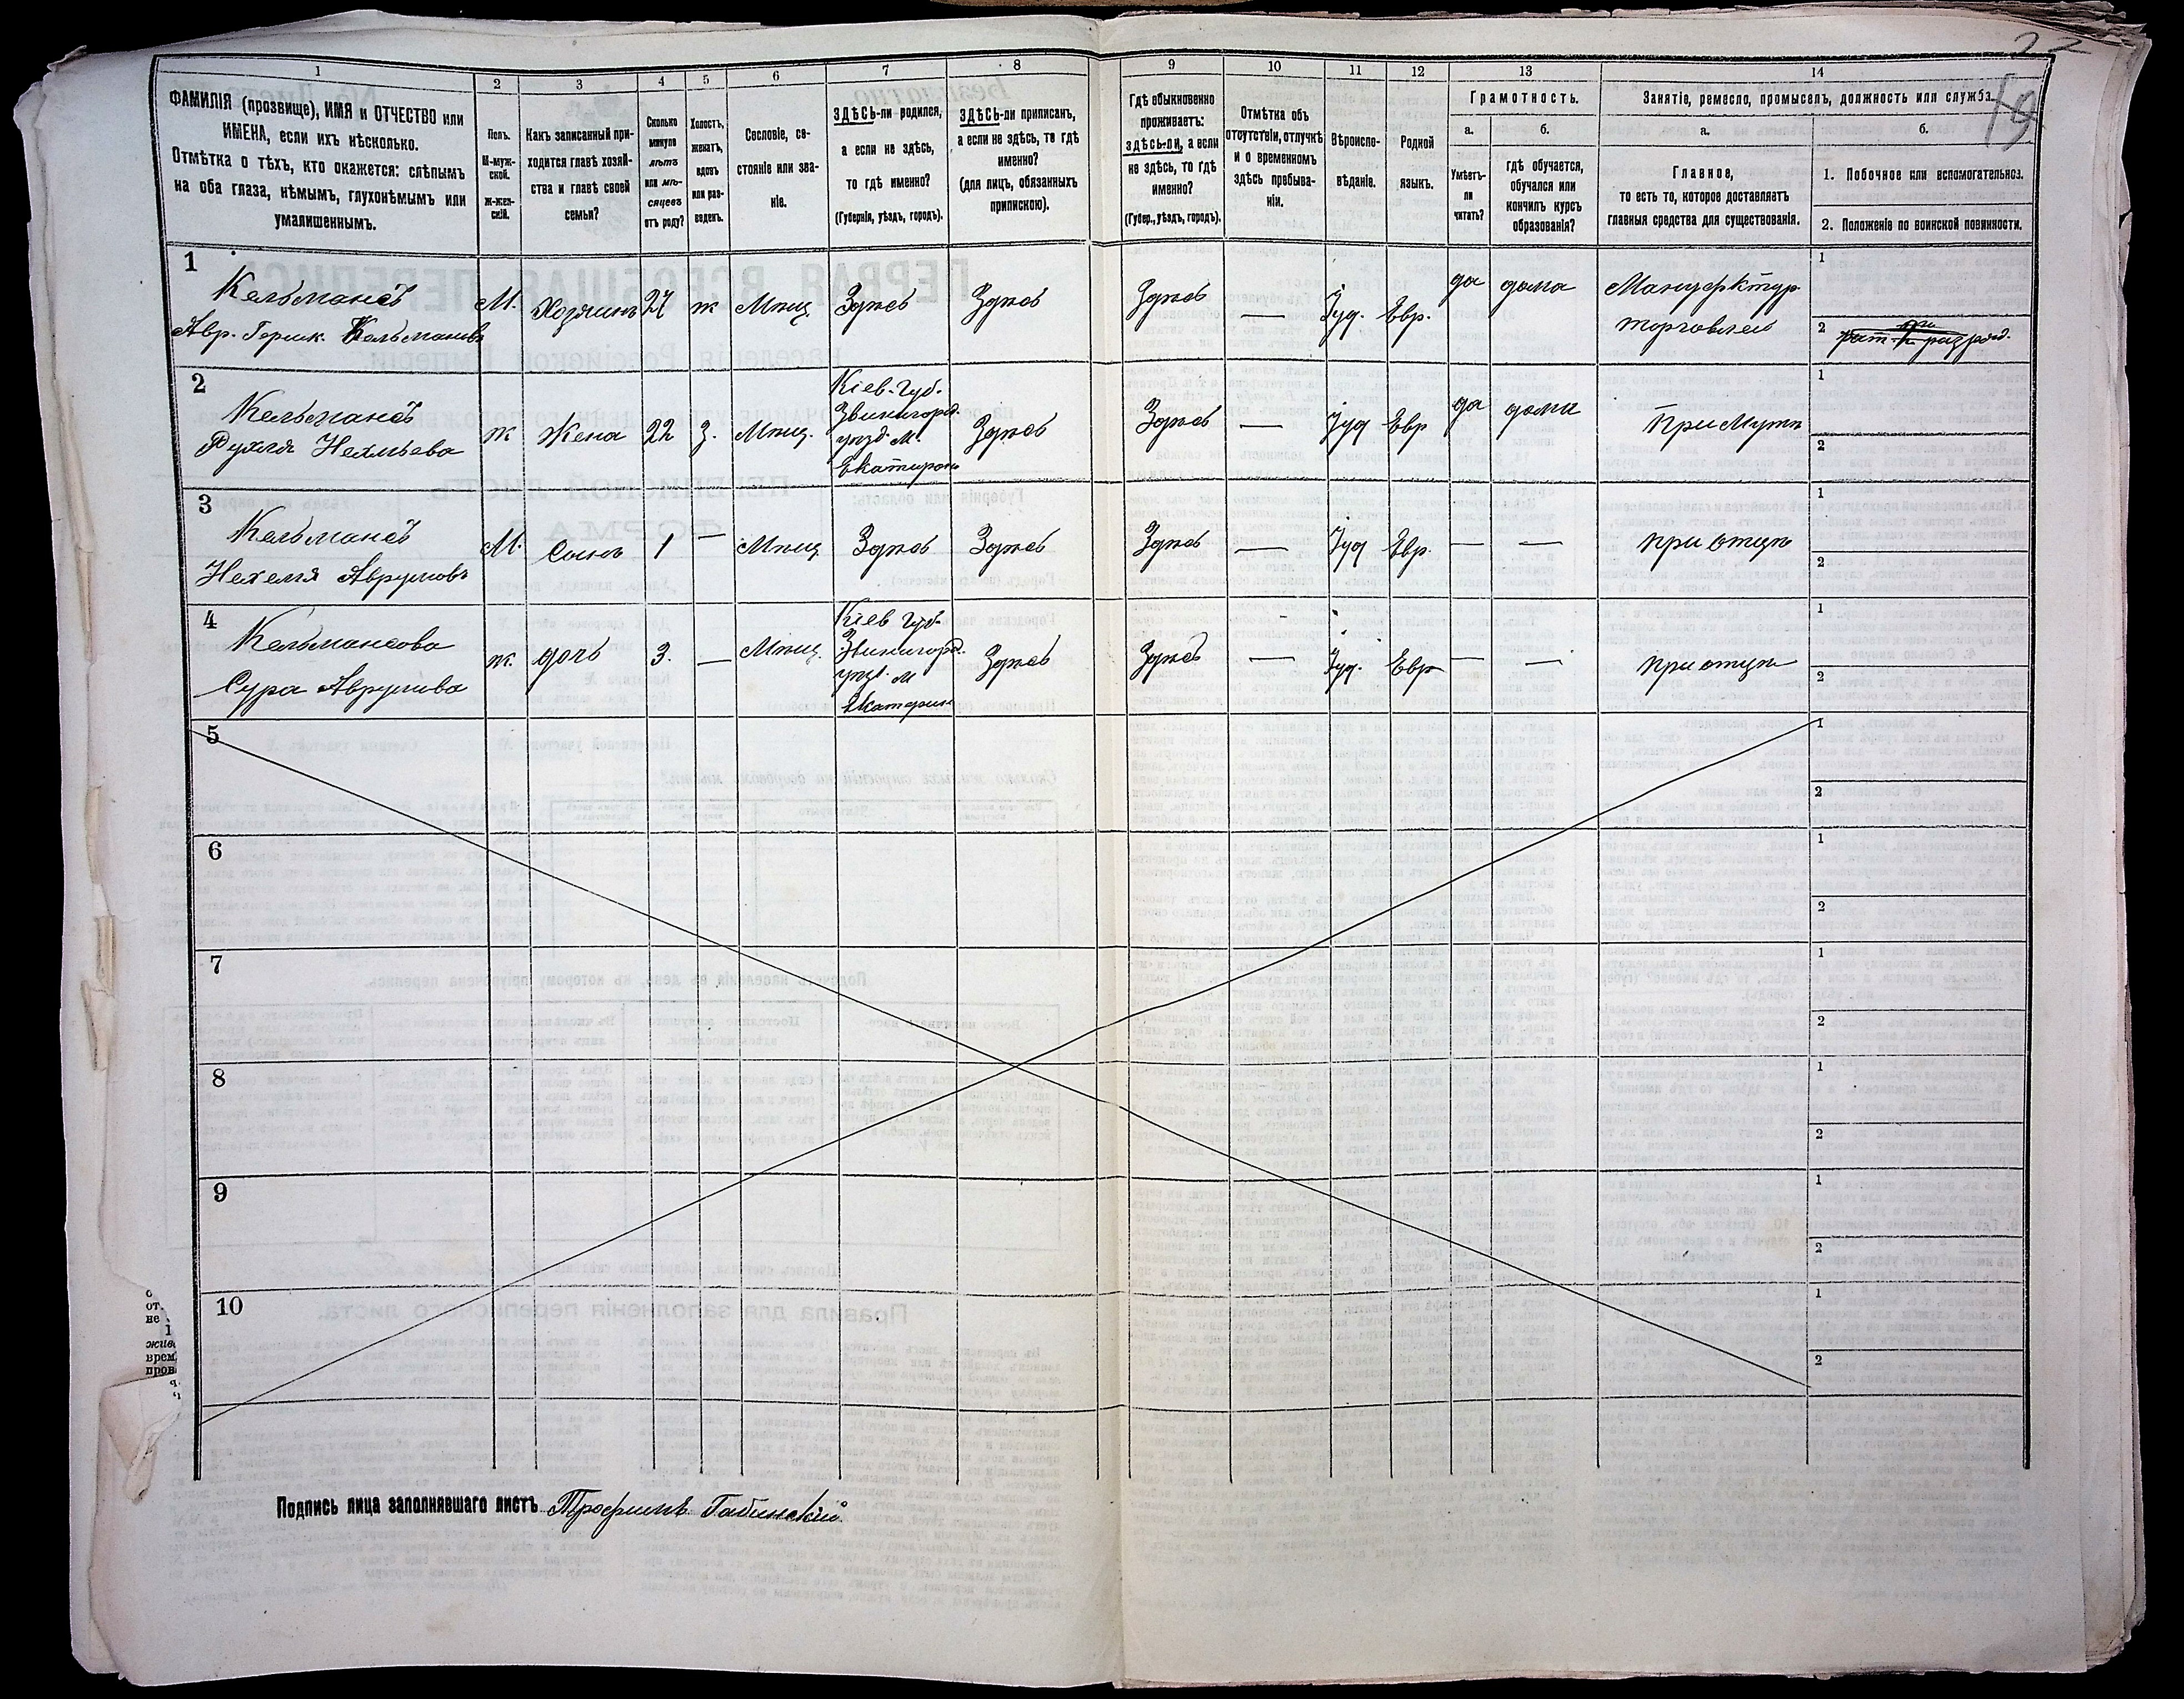 22
19
1
2
3
4
5
6
7
8
9
10
11
12
13
14
ФАМИЛІЯ (прозвище), ИМЯ и ОТЧЕСТВО или
ИМЕНА, если ихъ нѣсколько.
Отмѣтка о тѣхъ, кто окажется: слѣпымъ
на оба глаза, нѣмымъ, глухонѣмымъ или
умалишеннымъ.
Полъ.
М-муж-
ской.
ж-жен-
скій.
Какъ записанный при-
ходится главѣ хозяй-
ства и главѣ своей
семьи?
Сколько
минуло
лѣтъ
или мѣ-
сяцевъ
отъ роду?
Холостъ,
женатъ,
вдовъ
или раз-
веденъ.
Сословіе, со-
стояніе или зва-
ніе.
ЗДѢСЬ-ли родился,
а если не здѣсь,
то гдѣ именно?
(Губернія, уѣздъ, городъ).
ЗДѢСЬ-ли приписанъ,
а если не здѣсь, то гдѣ
именно?
(для лицъ, обязанныхъ
припискою).
Гдѣ обыкновенно
проживаетъ:
здѣсь-ли, а если
не здѣсь, то гдѣ
именно?
(Губер., уѣздъ, городъ).
Отмѣтка объ
отсутствіи, отлучкѣ
и о временномъ
здѣсь пребыва-
ніи.
Вѣроиспо-
вѣданіе.
Родной
языкъ.
Грамотность.
а.
б.
Умѣетъ-
ли
читать?
гдѣ обучается,
обучался или
кончилъ курсъ
образованія?
Занятіе, ремесло, промыселъ, должность или служба.
а.
б.
Главное,
то есть то, которое доставляетъ
главныя средства для существованія.
1. Побочное или вспомогательное.
2. Положеніе по воинской повинности.
1
Кельмансъ
Авр. Гершк. Кельмансъ
М.
Хозяинъ
27
ж
Мѣщ.
Здѣсь
Здѣсь
Здѣсь
—
Іуд.
Евр.
да
дома
Мануфктур.
торговлей
1
2
2
Кельмансъ
Рухля Нехмьева
ж
Жена
22
З.
Мѣщ.
Кіев. Губ.
Звиногород.
уѣзд. м.
Здѣсь
Здѣсь
—
Іуд
Евр
да
дома
При Мужѣ
1
2
3
Кельмансъ
Нехемя Аврумовъ
М.
Сынъ
1
—
Мѣщ
Здѣсь
Здѣсь
Здѣсь
—
Іуд
Евр.
—
—
при отцѣ
1
2
4
Кельмансова
Сура Аврумова
ж.
дочь
3.
—
Мѣщ.
Кіев Губ.
Звиногород.
уѣзд. м
Здѣсь
Здѣсь
—
Іуд.
Евр
—
—
при отцѣ
1
2
5
1
2
6
1
2
7
1
2
8
1
2
9
1
2
10
1
2
Подпись лица заполнявшаго листъ Трофимъ Габинскій